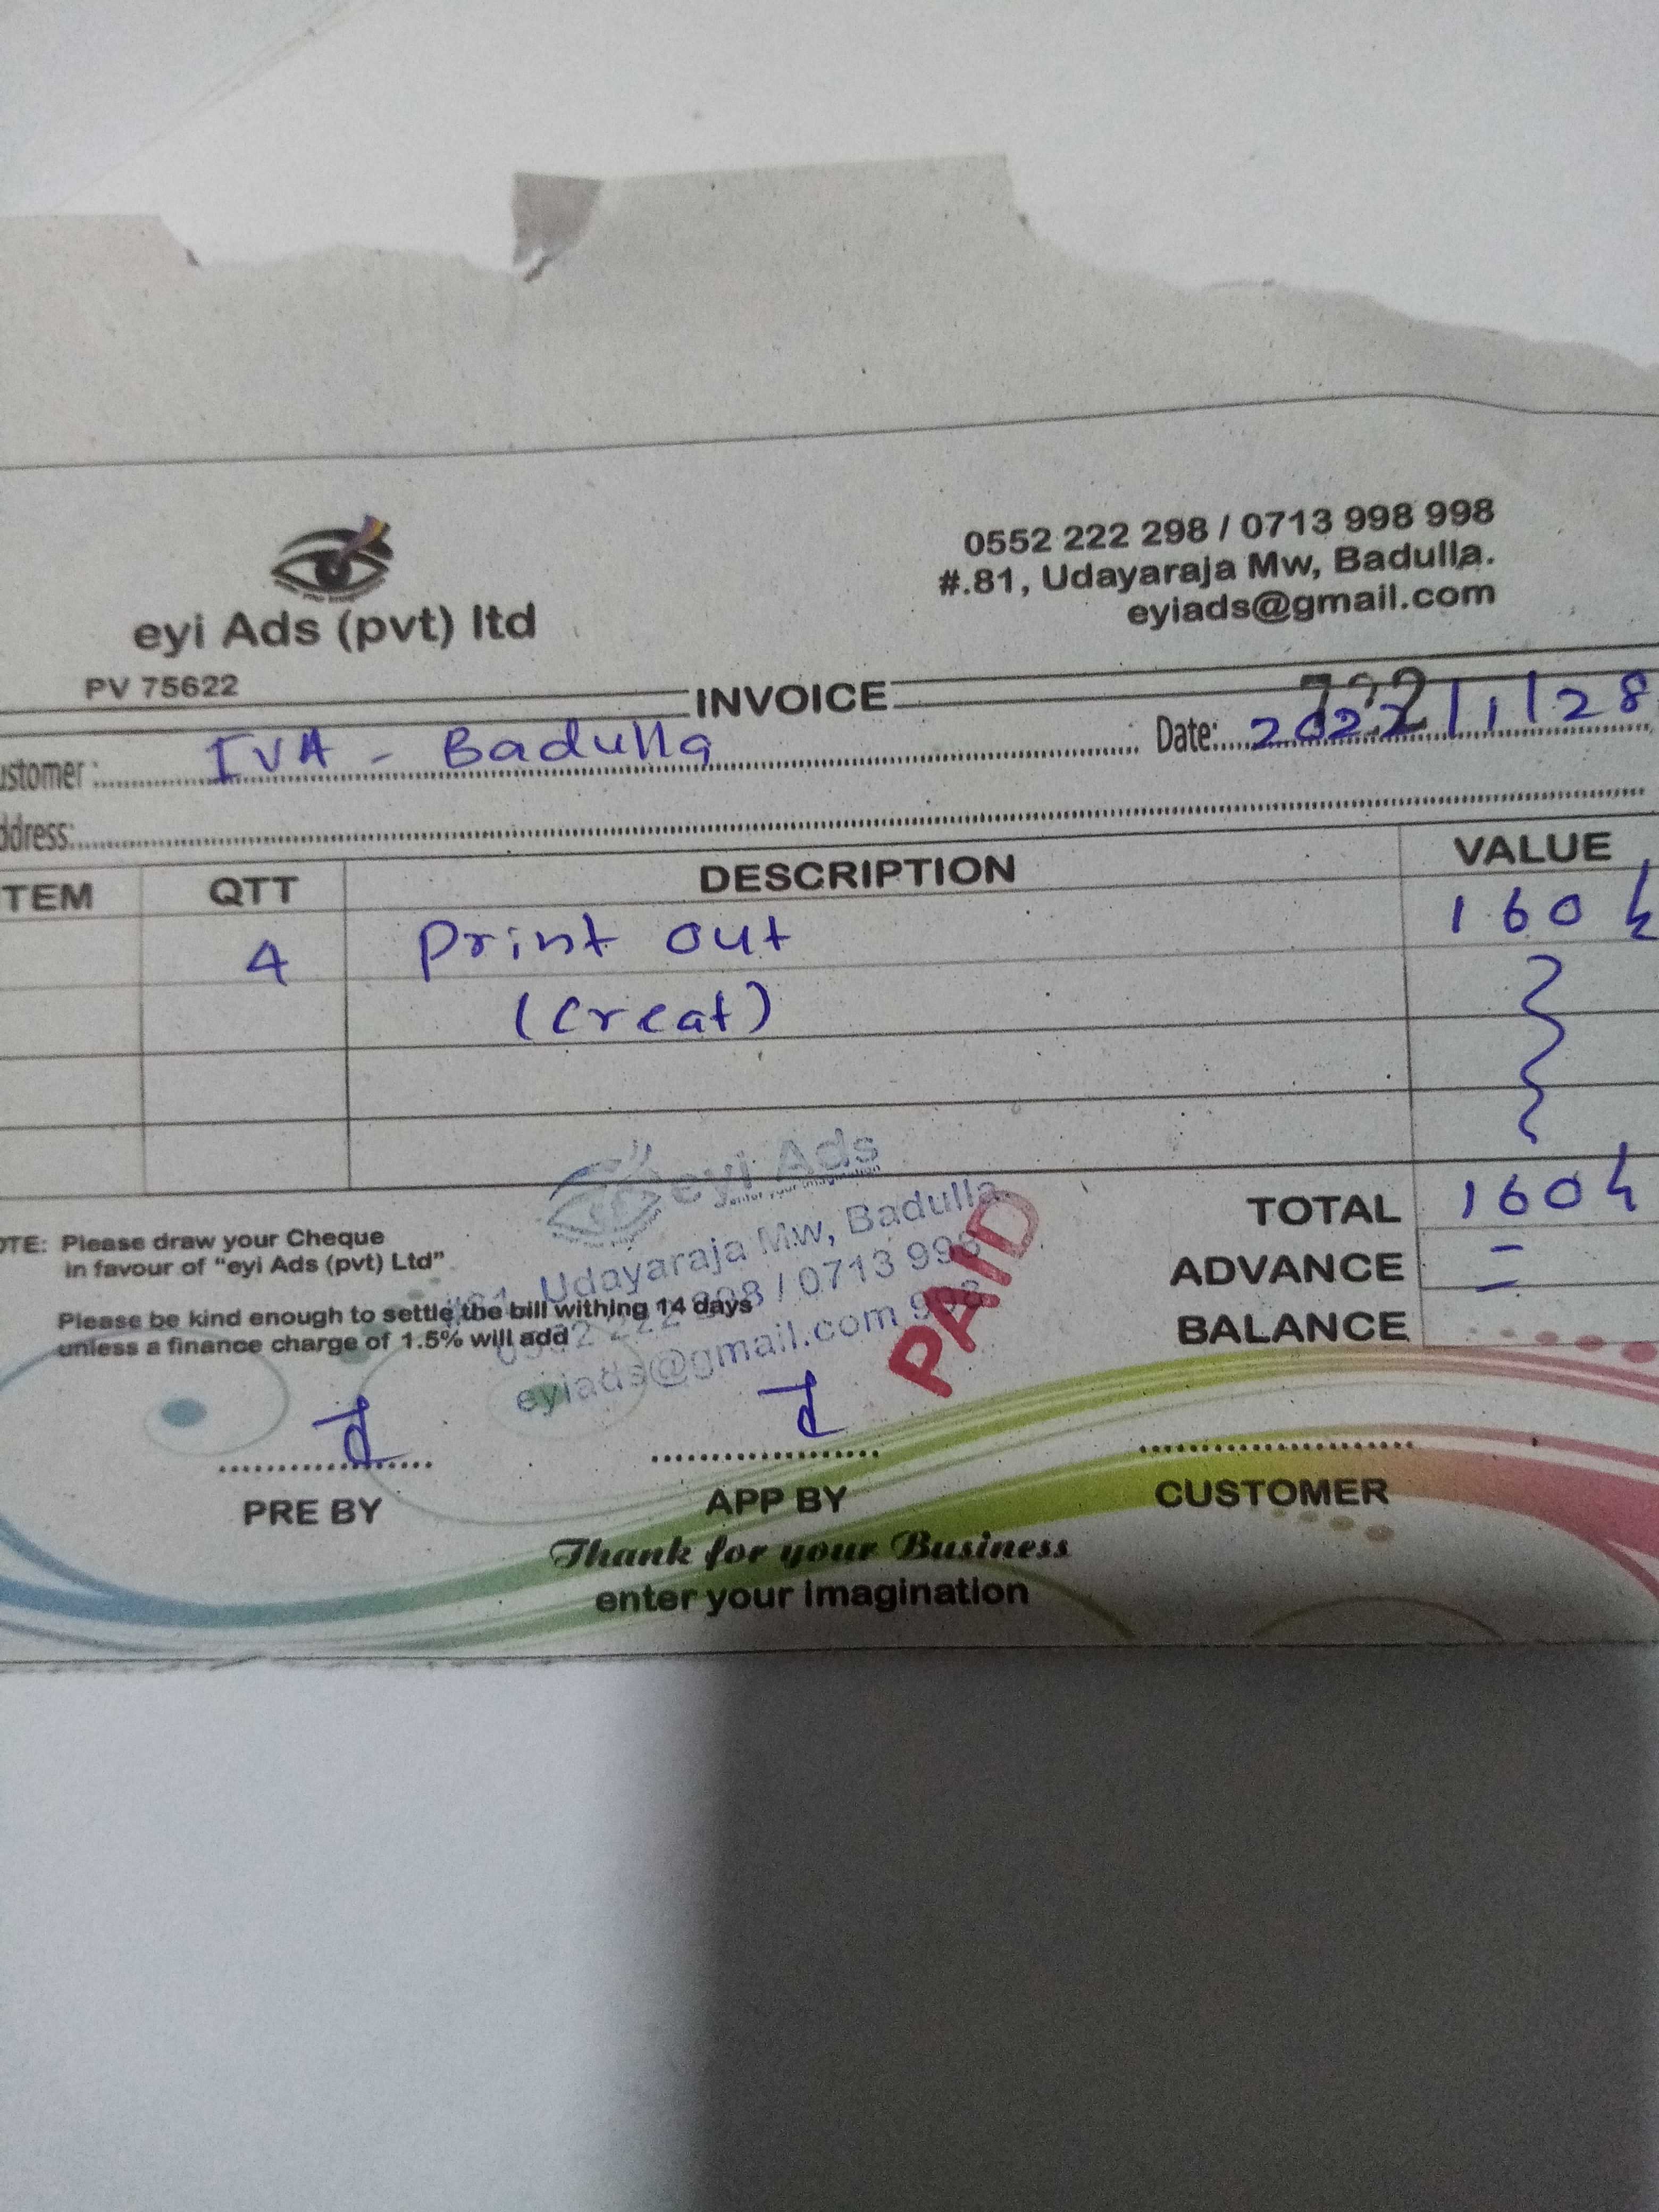 eyi Ads (pvt) ltd
PV 75622
0552 222 298 / 0713 998 998
#.81, Udayaraja Mw, Badulla.
eyiads@gmail.com
INVOICE
ustomer : IVA - Badulla
Date: 2022/1/28
ddress:
TEM QTT DESCRIPTION VALUE
4 Print out 160
(Creat)
TOTAL 160
ADVANCE =
BALANCE
OTE: Please draw your Cheque
in favour of "eyi Ads (pvt) Ltd"
Please be kind enough to settle the bill withing 14 days
unless a finance charge of 1.5% will add
eyi Ads
Udayaraja Mw, Badulla.
/ 0713 998
eyiads@gmail.com 998
PAID
PRE BY
APP BY
CUSTOMER
Thank for your Business
enter your imagination